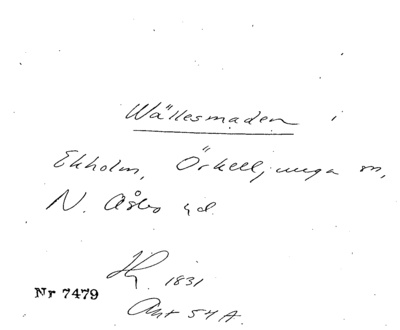 Wällesmaden i
Ekholm, Örkelljunga sn,
N. Åsbo hd.
Hy. 1831
Nr 7479
Akt 54 A.